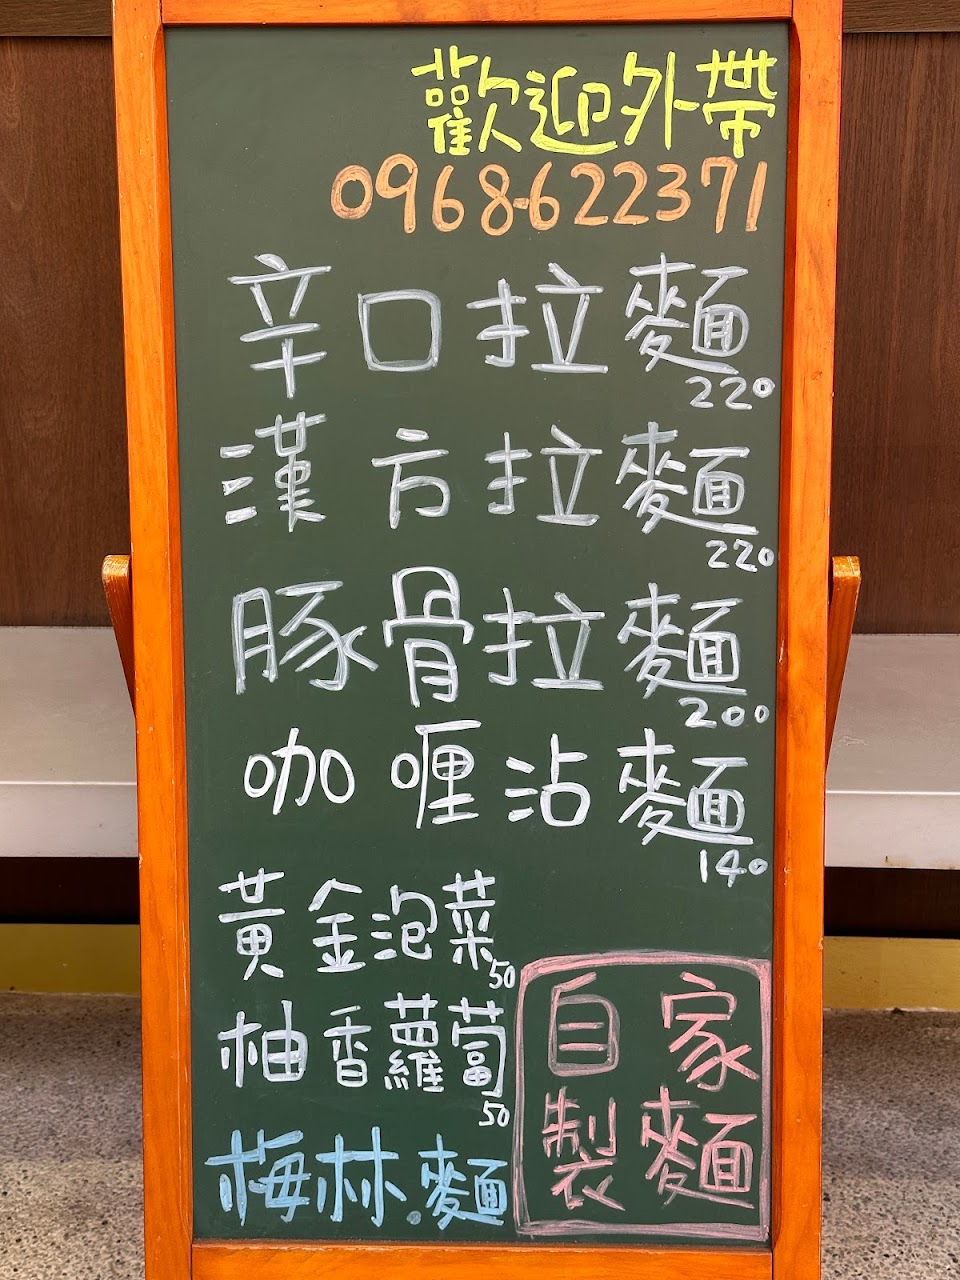 歡迎外帶
0968-622371
辛口拉麵
220
漢方拉麵
220
豚骨拉麵
200
咖喱沾麵
140
黃金泡菜
50
柚香蘿蔔
50
梅林.麵
自家
製麵